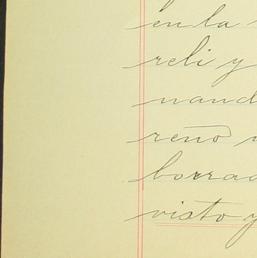 en la
reli y
nand
reno
borrad
visto y